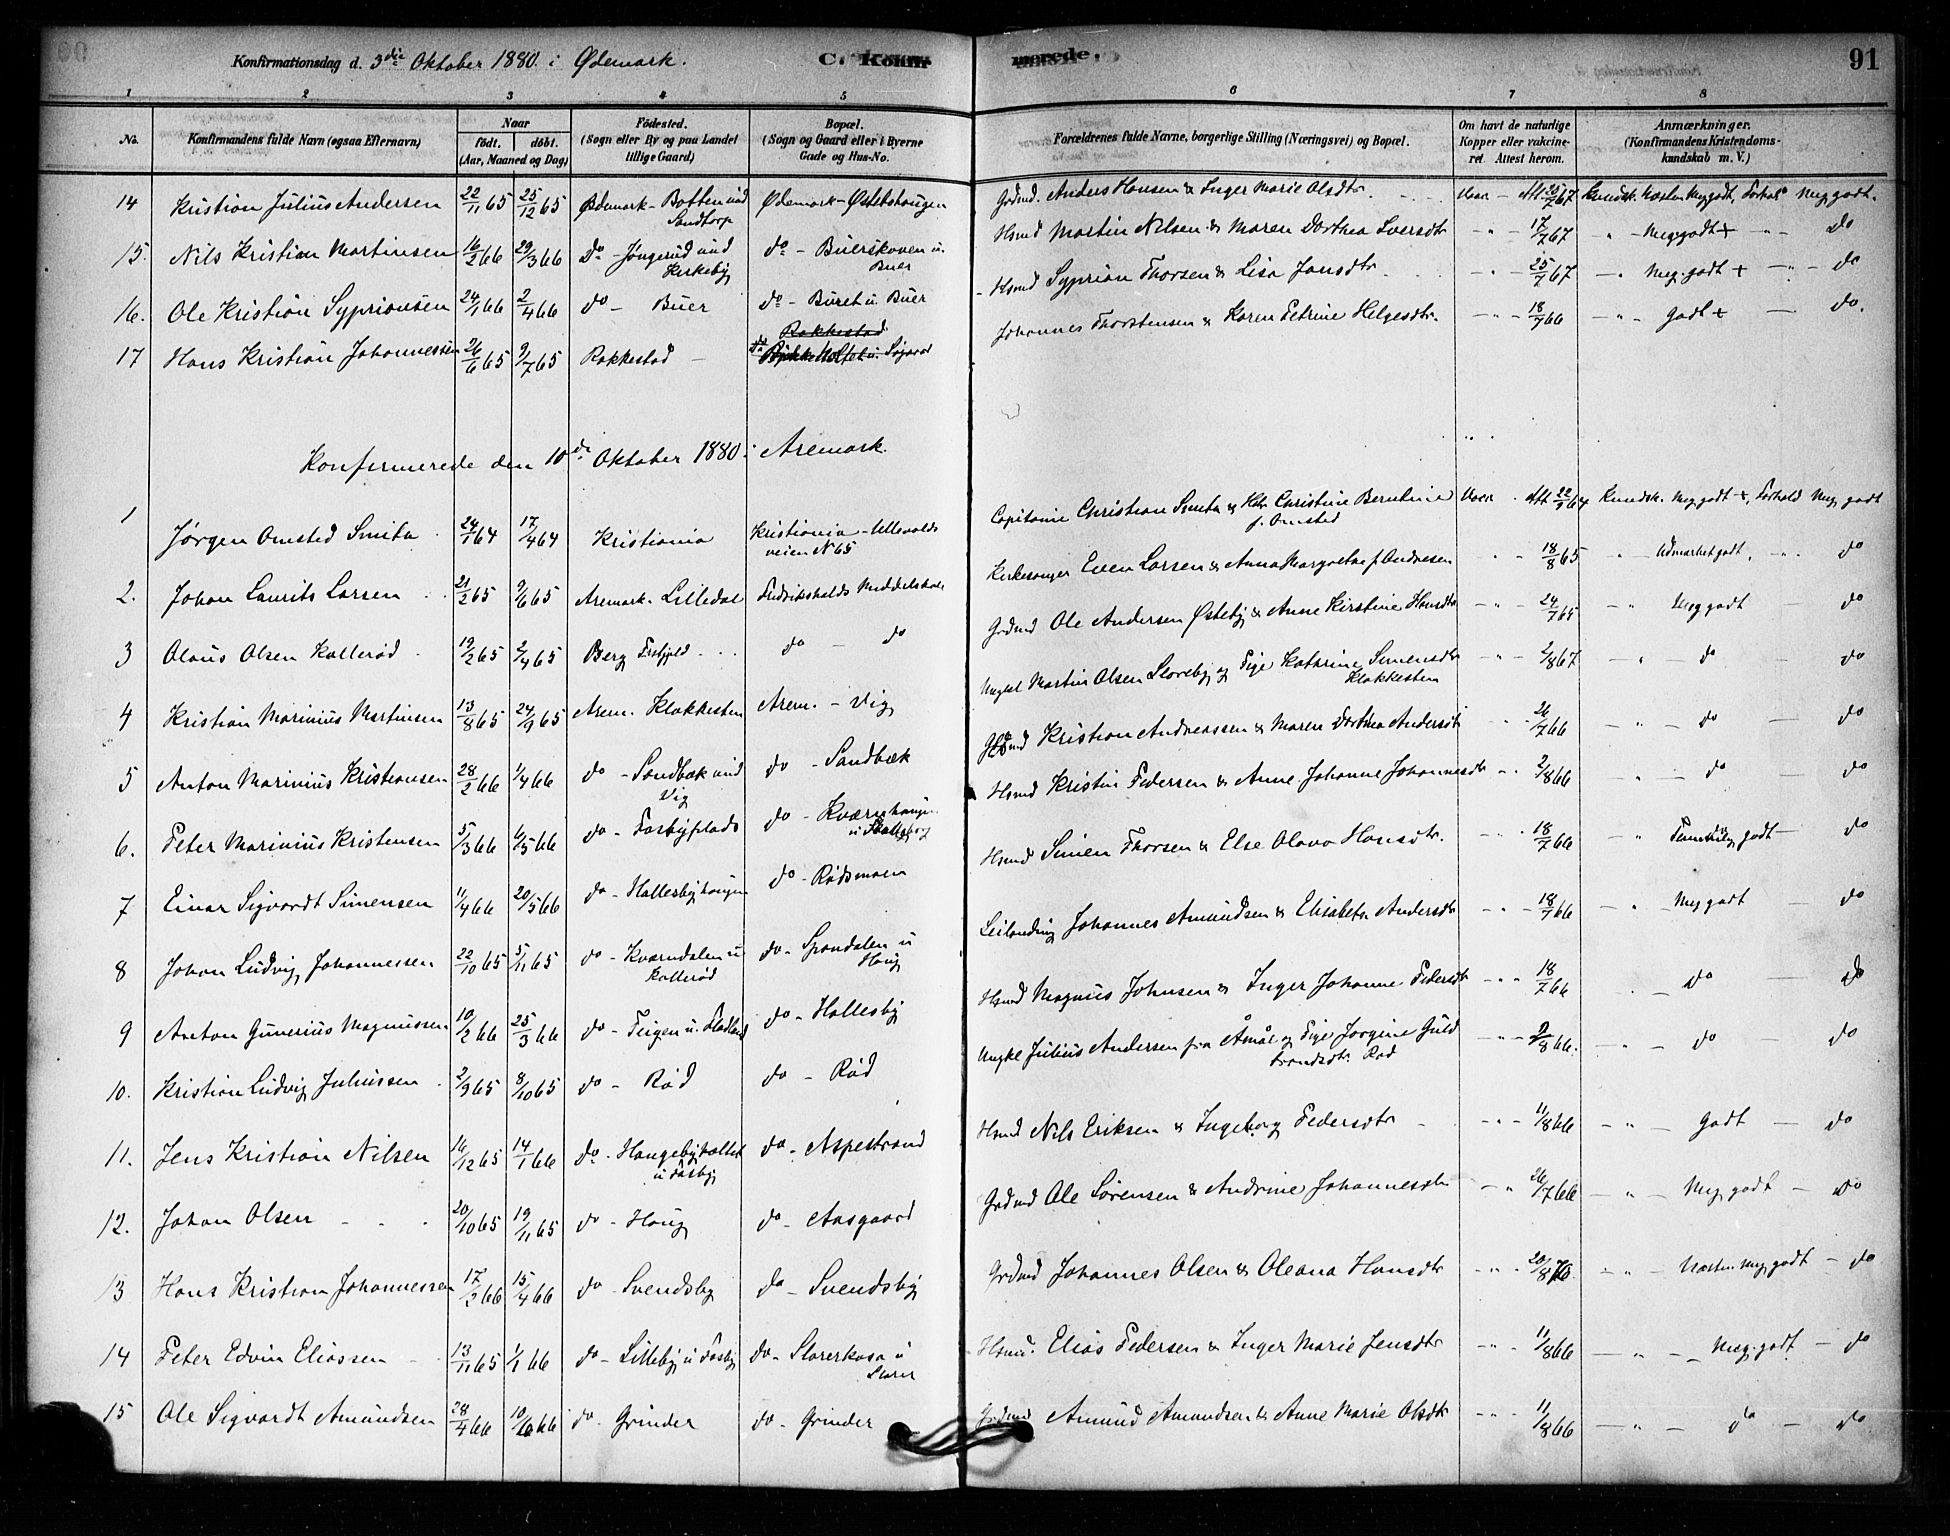 Konfirmationsdag d. 3die Oktober 1880 i Ødemark.
C. Konfirmerede.
91
1 2 3 4 5 6 7 8
No. Konfirmandens fulde Navn (ogsaa Efternavn)
Naar født. døbt. (Aar, Maaned og Dag)
Fødested. (Sogn eller By og paa Landet tillige Gaard)
Bopæl. (Sogn og Gaard eller i Byerne Gade og Hus-No.
Forældrenes fulde Navne, borgerlige Stilling (Næringsvei) og Bopæl.
Om havt de naturlige Kopper eller vakcineret. Attest herom.
Anmærkninger. (Konfirmandens Kristendomskundskab m. V.)
14 Kristian Julius Andersen 22/11 65 25/12 65 Ødemark - Botten und Sandtorp Ødemark - Østebhaugen Grdmd. Anders Hansen & Inger Marie Olsdtr. Vacc. Att 67 Kundsk. Næsten Meg godt, Forhold Meg godt.
15. Nils Kristian Martinsen 16/2 66 29/3 66 Do - Jøngerud und Kirkeby do - Buerskoven u. Buer Hsmd Martin Nilsen & Maren Dorthea Iversdtr 17/7 67 Meg godt + Do
16. Ole Kristian Syprionsen 24/1 66 2/4 66 do - Buer do - Buret u Buer Hsmd Syprian Thorsen & Lisa Jansdtr 25/7 67 Meg. godt + do
17 Hans Kristian Johannessen 26/6 65 9/7 65 Rakkestad - Rakkestad do Johannes Thorstensen & Karen Petrine Helgesdtr. 18/7 66 Godt + do.
Konfirmerede den 10de Oktober 1880 i Aremark.
1 Jørgen Omsted Smith 24/1 64 17/4 64 Kristiania Kristiania - Ullevoldsveien N 65 Capitaine Christian Smith & Christine Berntine f. Omsted Vacc. Att 22/9 64 Kundsk. Meg godt +, Forhold Meg godt
2. Johan Laurits Larsen 21/2 65 9/6 65 Aremark - Lilledal Fredrikshalds Middelskole Kirkesanger Even Larsen & Anna Margrethe f Andresen 18/8 65 Udmærket godt, do
3 Olaus Olsen Kollerød 19/2 65 2/4 65 Berg do - do Grdmd Ole Andersen Østeby & Anne Kirstine Hansdtr 24/7 65 Meg godt do
4 Kristian Marinius Martinsen 13/8 65 24/9 65 Arem. Klokkesten Arem. - Vig Ungkl Martin Olsen Storeby og Pige Kathrine Simensdtr Klokkesten 2/8 67 do do
5 Anton Marinius Kristiansen 28/2 66 1/4 66 do - Sandbæk und Vig do - Sandbæk Kristian Andreassen & Maren Dorthea Andersdtr 26/7 66 do do
6. Peter Marinius Kristensen 5/3 66 6/5 66 do - Fosbyplads do - Kværnhaugen Hsmd Kristin Pedersen & Anne Johanne Johannesdtr 2/8 66 do do
7 Einar Sigvardt Simensen 11/4 66 20/5 66 do - Hallesbyhaugen do - Rødsmoen Hsmd Simen Thorsen & Else Olava Hansdtr. 18/7 66 Temmelig godt do
8 Johan Ludvig Johannessen 22/10 65 5/11 65 do - Kværndalen u Kollerød do - Spondalen u Houg Leilænding Johannes Amundsen & Elisabeth Andersdtr 18/7 66 Meg godt do
9 Anton Gunerius Magnussen 10/2 66 25/3 66 do - Teigen u. Fladlund do - Hallesby Hsmd Magnus Johnsen & Inger Johanne Pedersdtr 18/7 66 do do
10. Kristian Ludvig Juliussen 2/9 65 8/10 65 do - Rød do - Rød Ungkl Julius Andersen fra Åmål og Pige Jørgine Guldbrandsdtr. Rød 2/8 66. do do
11. Jens Kristian Nilsen 16/12 65 14/1 66 do - Haugebyholtet u Fosby do - Aspestrand Hsmd Nils Eriksen & Ingeborg Pedersdtr 11/8 66 Godt do
12. Johan Olsen 20/10 65 19/11 65 do - Houg do - Aasgaard Grdmd Ole Sørensen & Andrine Johannesdtr 26/7 66 Meg godt do
13 Hans Kristian Johannessen 17/2 66 15/4 66 do - Svendsby do - Svendsby Grdmd Johannes Olsen & Oleana Hansdtr 20/8 70. Næsten meg godt do
14 Peter Edvin Eliassen 13/11 65 1/1 66 do - Lilleby u Fosby do - Storerkasa u Storer Hsmd. Elias Pedersen & Inger Marie Jensdtr 11/8 66 Meg. godt do
15 Ole Sigvardt Amundsen 28/4 66 10/6 66 do - Grinder do - Grinder Grdmd Amund Amundsen & Anne Marie Olsdtr 11/8 66 do do